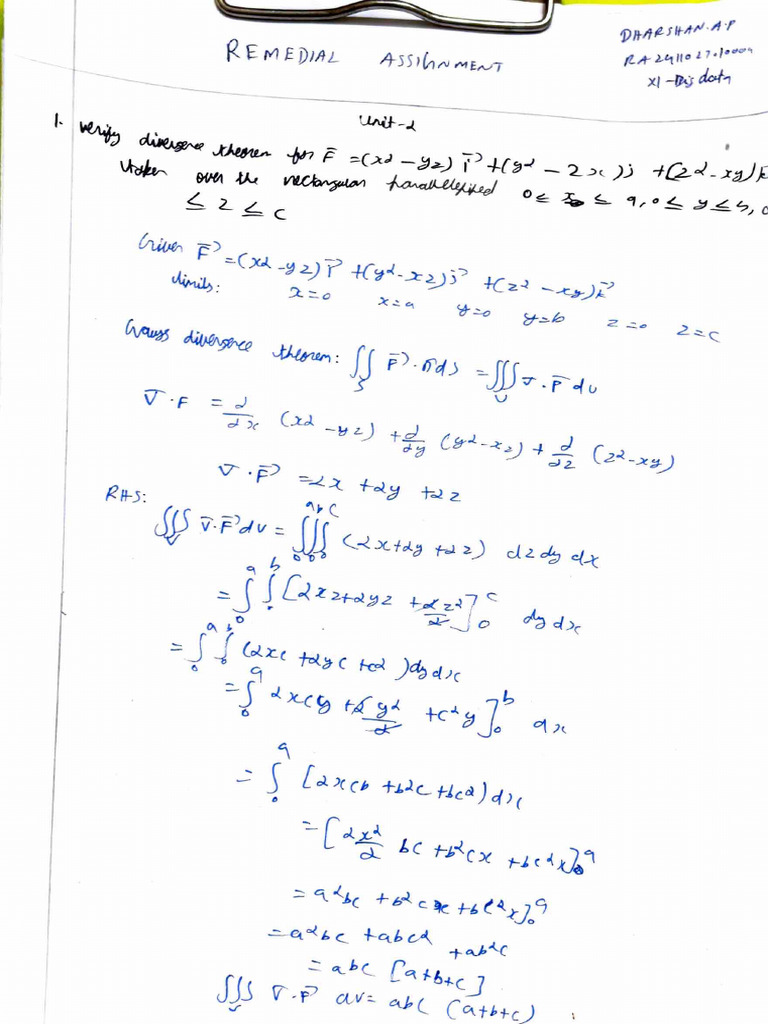 REMEDIAL ASSIGNMENT
DHARSHAN.A.P
XI-Big data
Unit-2
1. Verify divergence theorem for F⃗ = (x² - yz) i⃗ + (y² - zx) j⃗ + (z² - xy) k⃗
taken over the rectangular parallelepiped 0 ≤ x ≤ a, 0 ≤ y ≤ b, 0
≤ z ≤ c
Given F⃗ = (x² - yz) i⃗ + (y² - xz) j⃗ + (z² - xy) k⃗
limits: x=0 x=a y=0 y=b z=0 z=c
Gauss divergence theorem: ∬_S F⃗ · n̂ ds = ∭_V ∇ · F⃗ dv
∇ · F = d/dx (x² - yz) + d/dy (y² - xz) + d/dz (z² - xy)
∇ · F⃗ = 2x + 2y + 2z
RHS:
∭_V ∇ · F⃗ dv = ∫₀^a ∫₀^b ∫₀^c (2x + 2y + 2z) dz dy dx
= ∫₀^a ∫₀^b [2xz + 2yz + 2z²/2]₀^c dy dx
= ∫₀^a ∫₀^b (2xc + 2yc + c²) dy dx
= ∫₀^a 2xcy + 2cy²/2 + c²y]₀^b dx
= ∫₀^a [2xcb + b²c + bc²) dx
= [2x²/2 bc + b²cx + bc²x]₀^a
= a²bc + b²cx + bc²x]₀^a
= a²bc + abc² + ab²c
= abc [a+b+c]
∭_V ∇ · F⃗ dv = abc (a+b+c)